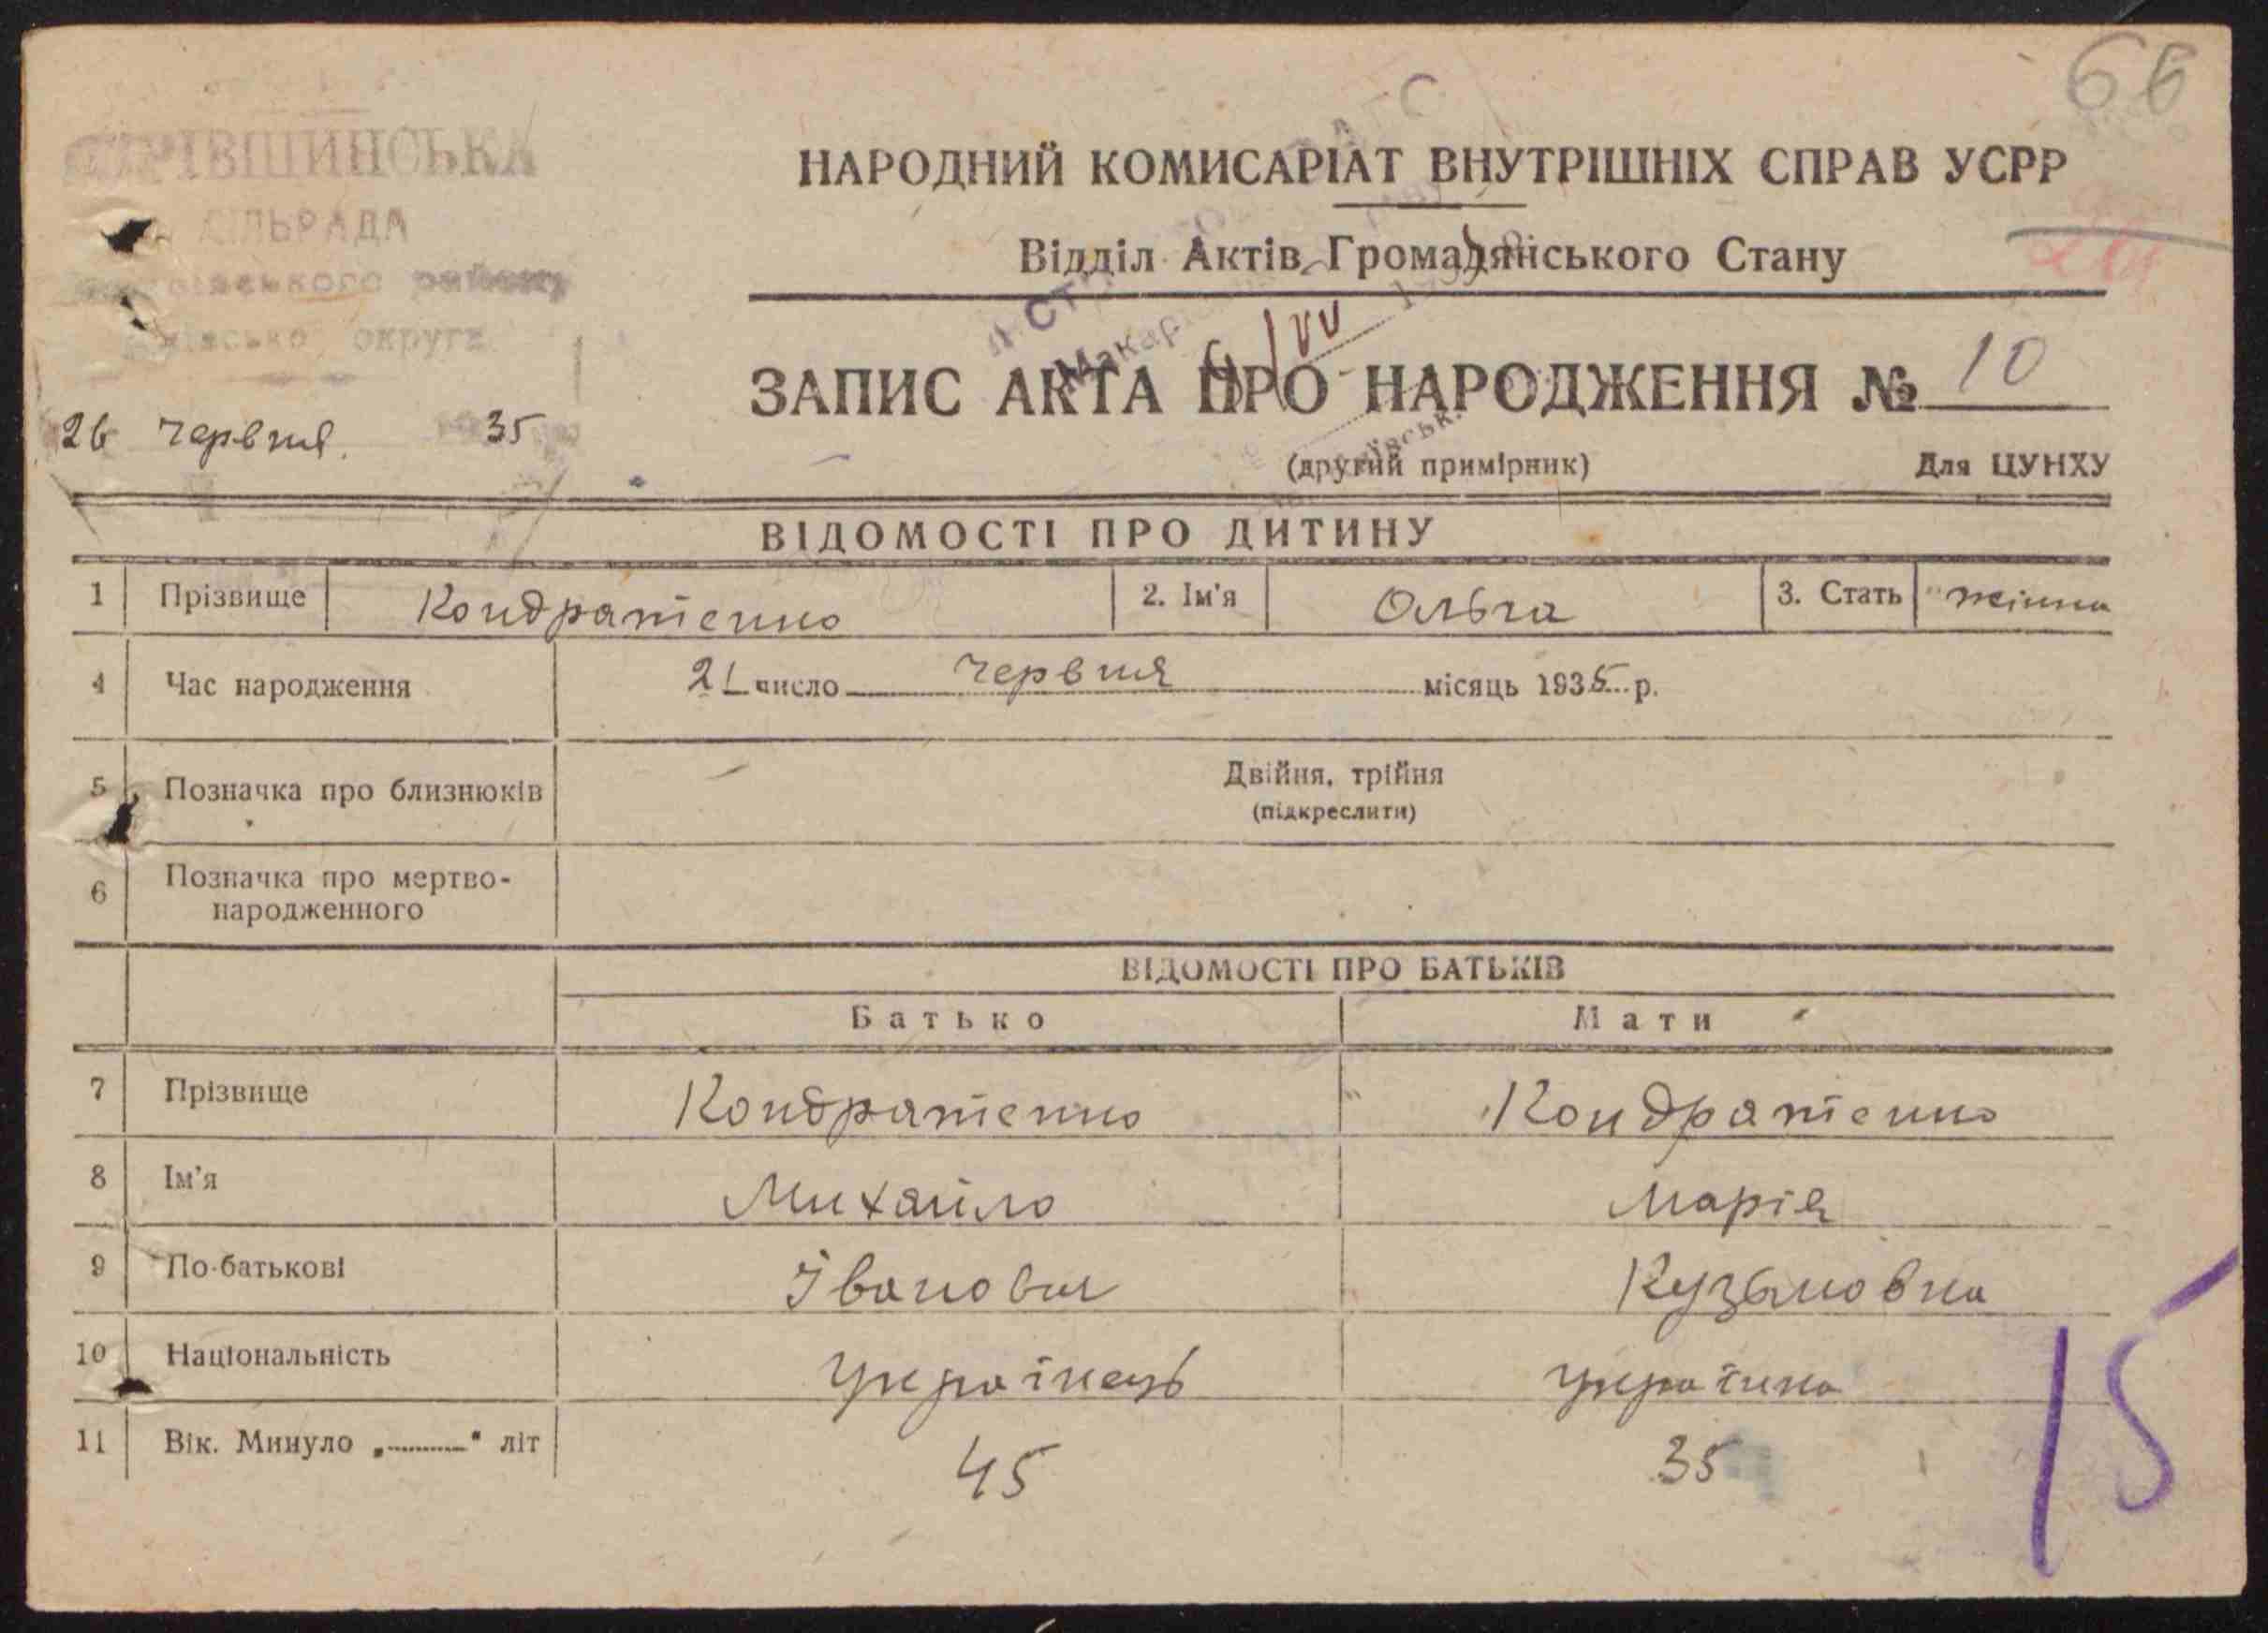 66
СІЛЬРАДА
району
округа
26 червня 35
НАРОДНИЙ КОМИСАРІАТ ВНУТРІШНІХ СПРАВ УСРР
Відділ Актів Громадянського Стану
ЗАПИС АКТА ПРО НАРОДЖЕННЯ № 10
(другий примірник) Для ЦУНХУ
ВІДОМОСТІ ПРО ДИТИНУ
1 Прізвище Кондратенко 2. Ім'я Ольга 3. Стать
4 Час народження 21 число червня місяць 1935 р.
5 Позначка про близнюків Двійня, трійня
(підкреслити)
6 Позначка про мертво-
народженного
ВІДОМОСТІ ПРО БАТЬКІВ
Батько Мати
7 Прізвище Кондратенко Кондратенко
8 Ім'я Михайло Марія
9 По-батькові Іванович Кузьмовна
10 Національність Українець Українка
11 Вік. Минуло „ “ літ 45 35
15